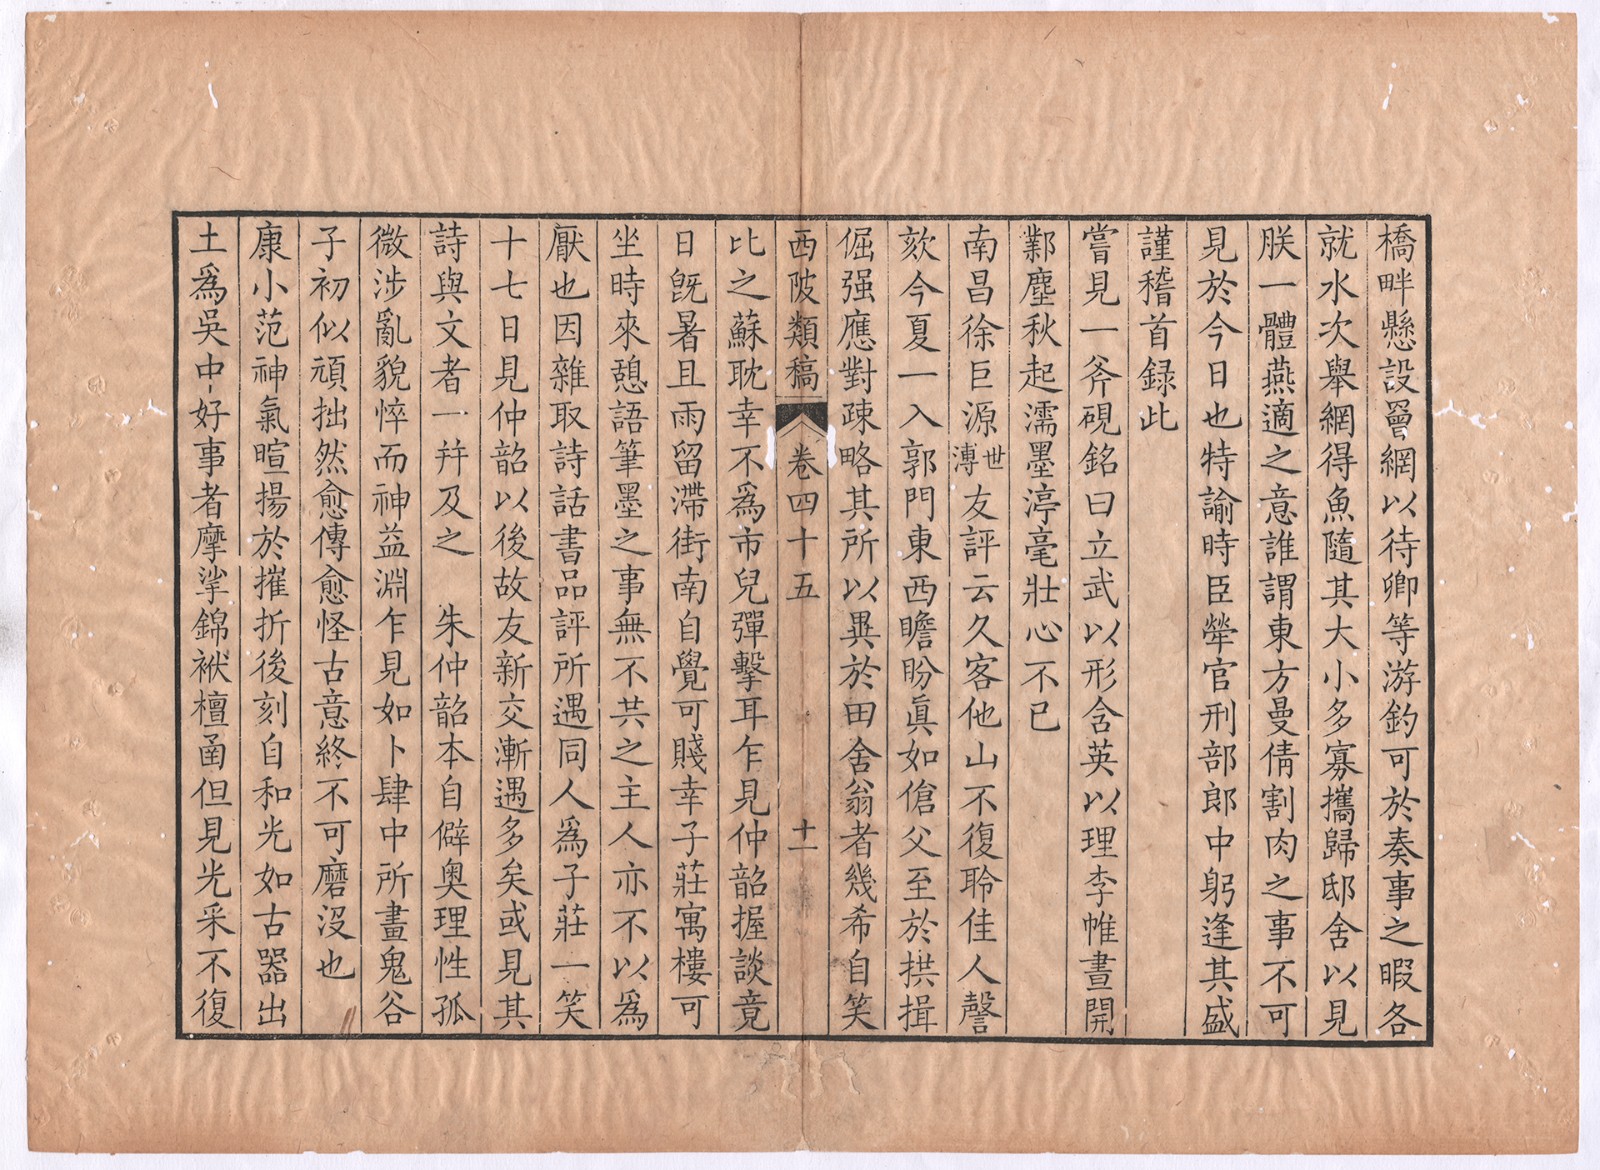 橋畔懸設罾網以待卿等游釣可於奏事之暇各
就水次舉網得魚隨其大小多寡攜歸邸舍以見
朕一體燕適之意誰謂東方曼倩割肉之事不可
見於今日也特諭時臣犖官刑部郎中躬逢其盛
謹稽首録此
嘗見一斧硯銘曰立武以形含英以理李帷晝開
鄴塵秋起濡墨渟毫壯心不已
南昌徐巨源世溥友評云久客他山不復聆佳人謦
欬今夏一入郭門東西瞻盼眞如傖父至於拱揖
倔强應對疎略其所以異於田舍翁者幾希自笑
西陂類稿 卷四十五 十一
比之蘇耽幸不爲市兒彈擊耳乍見仲韶握談竟
日旣暑且雨留滯街南自覺可賤幸子莊寓樓可
坐時來憩語筆墨之事無不共之主人亦不以爲
厭也因雜取詩話書品評所遇同人爲子莊一笑
十七日見仲韶以後故友新交漸遇多矣或見其
詩與文者一幷及之 朱仲韶本自僻奧理性孤
微涉亂貌悴而神益淵乍見如卜肆中所畫鬼谷
子初似頑拙然愈傳愈怪古意終不可磨沒也
康小范神氣暄揚於摧折後刻自和光如古器出
土爲吳中好事者摩挲錦袱檀函但見光采不復